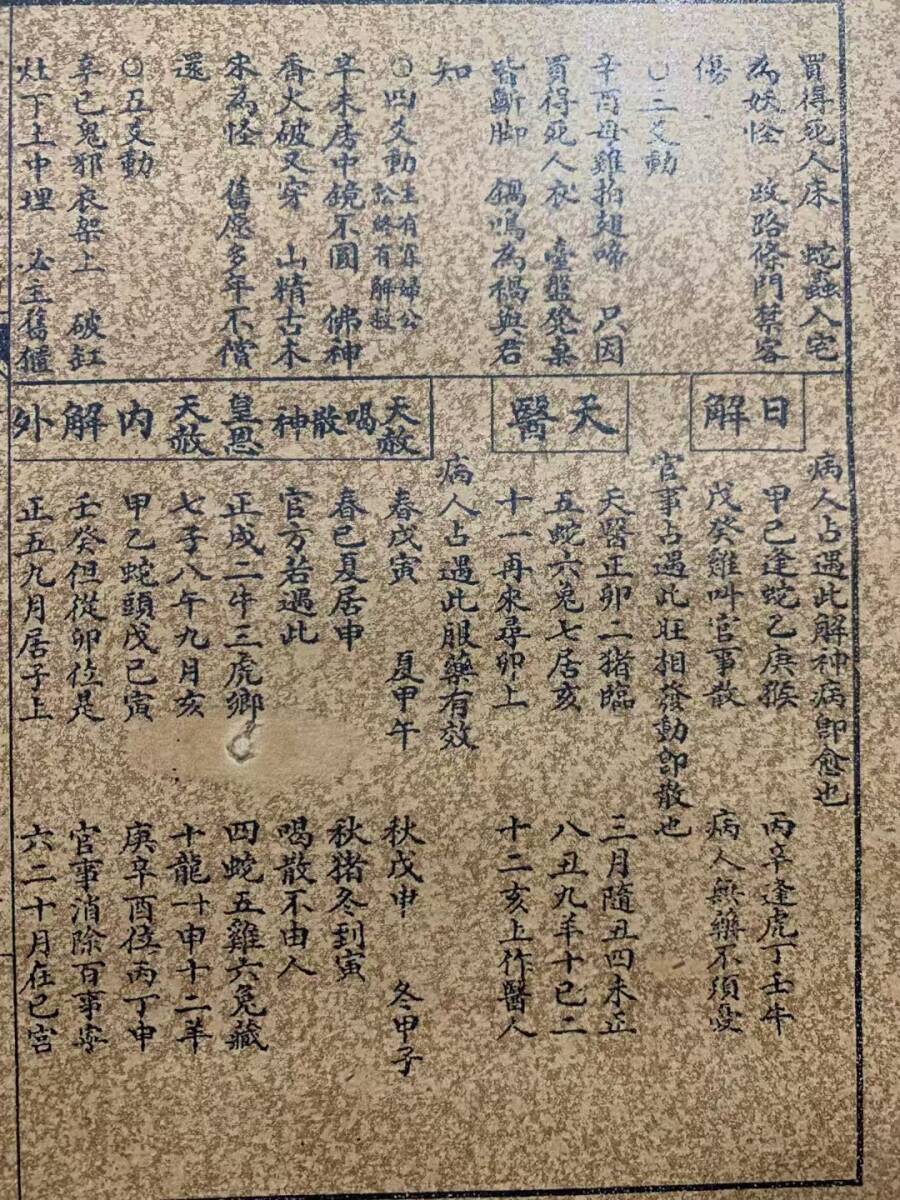 買得死人床　蛇蟲入宅
為妖怪　改路修門禁客
傷
○三爻動
辛酉母雞拍翅啼　只因
買得死人衣　臺盤凳桌
皆斷脚　鍋鳴為禍與君
知
○四爻動主有寡婦公訟終有解救
辛未居中鏡不圓　佛神
香火破又穿　山精古木
來為怪　舊愿多年不償
還
○五爻動
辛已鬼邪衣架上　破缸
灶下上中埋　必主舊
日解
病人占遇此解神病卽愈也
甲已逢蛇乙庚猴　丙辛逢虎丁壬牛
戊癸雞叫官事散　病人無藥不須憂
官事占遇此旺相發動卽散也
天醫
天醫正卯二猪臨　三月隨丑四未正
五蛇六兔七居亥　八丑九羊十已二
十一再來尋卯上　十二亥上作醫人
病人占遇此服藥有效
天赦
春戊寅　夏甲午　秋戊申　冬甲子
喝散神
春已夏居申　秋猪冬到寅
官方若遇此　喝散不由人
皇恩天赦
正戌二牛三虎鄉　四蛇五雞六兔藏
七子八午九月亥　十龍十一申十二羊
內解
甲乙蛇頭戊已寅　庚辛酉位丙丁申
壬癸但從卯位是　官事消除百事寧
外
正五九月居子上　六二十月在已宮